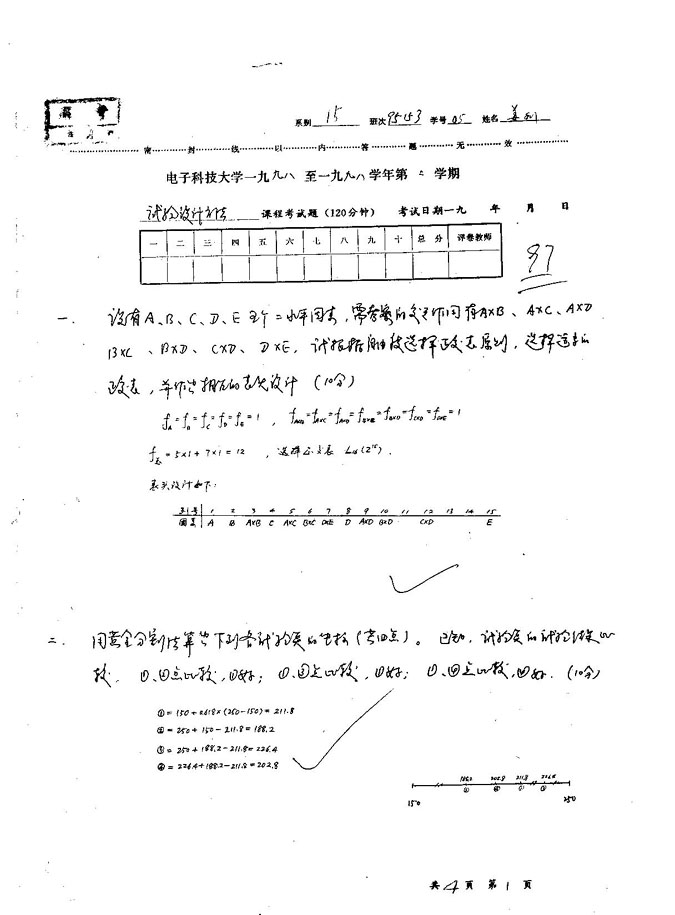 系别 15 班次 95153 学号 05 姓名
密 封 线 以 内 答 题 无 效
电子科技大学一九九八 至一九九八学年第 二 学期
试验设计方法 课程考试题（120分钟） 考试日期一九 年 月 日
一 二 三 四 五 六 七 八 九 十 总分 评卷教师
97
一. 设有A、B、C、D、E五个二水平因素，需考察的交互作用有A×B、A×C、A×D
B×C、B×D、C×D、D×E，试根据自由度选择正交表原则，选择适当的
正交表，并作出相应的表头设计（10分）
f_A=f_B=f_C=f_D=f_E=1，f_A×B=f_A×C=f_A×D=f_B×C=f_B×D=f_C×D=f_D×E=1
f_总=5×1+7×1=12，选择正交表 L16(2^15).
表头设计如下:
列号 1 2 3 4 5 6 7 8 9 10 11 12 13 14 15
因素 A B A×B C A×C B×C D×E D A×D B×D C×D E
二. 用黄金分割法算出下列各试验点的坐标（考四点）。已知，试验点的试验结果比
较，①、②点比较，①好；①、③点比较，①好；①、④点比较，④好.（10分）
①=150+0.618×(250-150)=211.8
②=250+150-211.8=188.2
③=250+188.2-211.8=226.4
④=226.4+188.2-211.8=202.8
188.2 202.8 211.8 226.4
② ④ ① ③
150 250
共4页 第1页